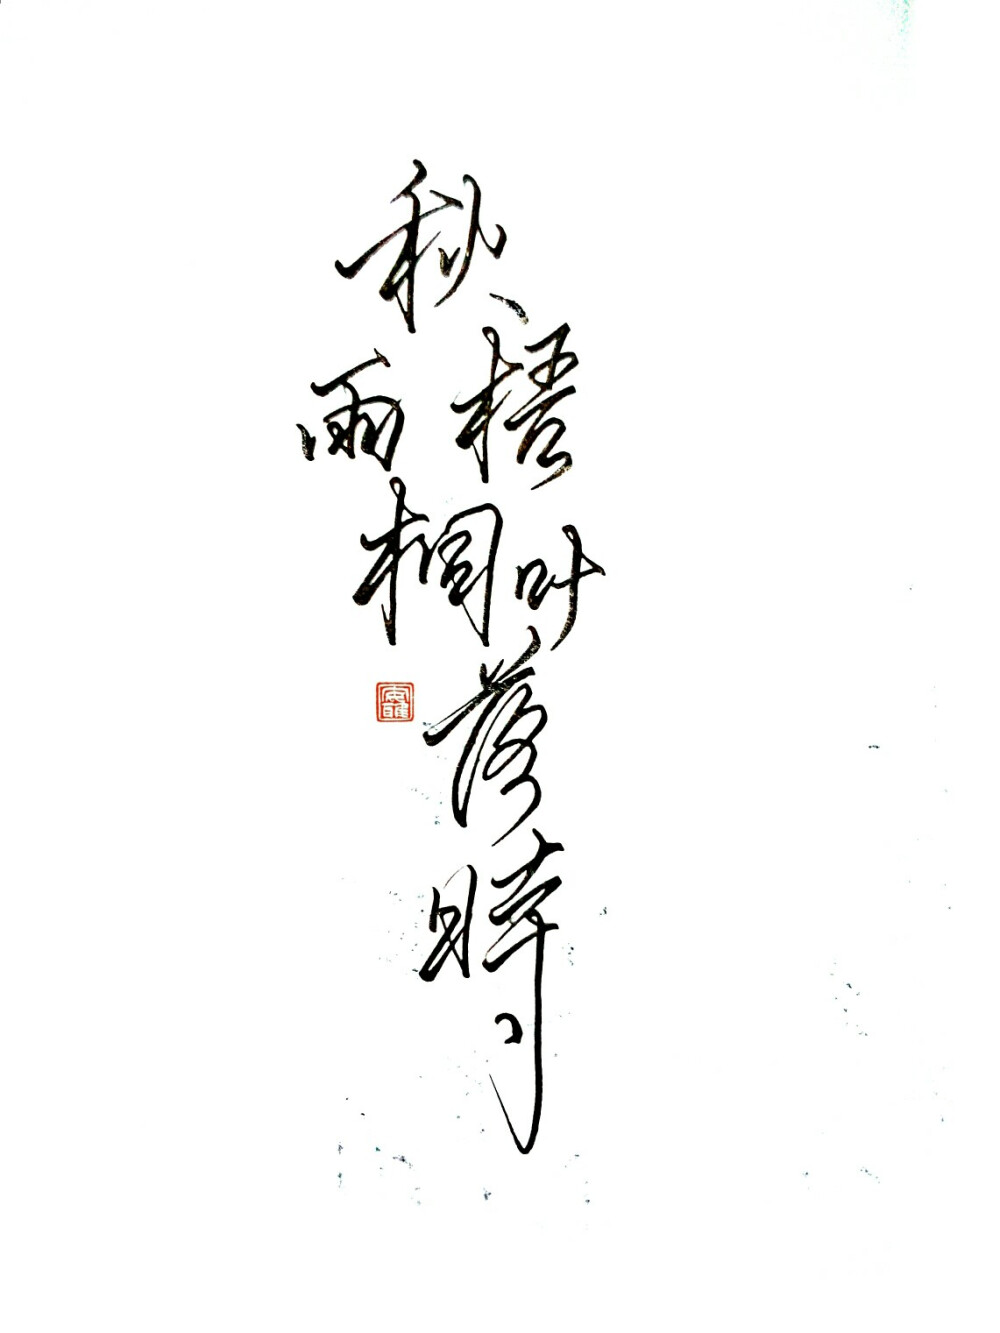 秋雨梧桐叶落時